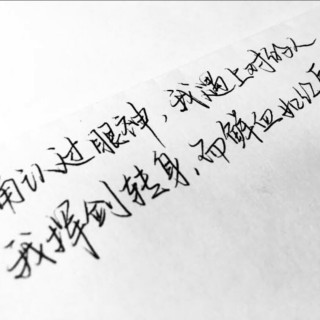 确认过眼神，我遇上对的人
我挥剑转身，而鲜血如红